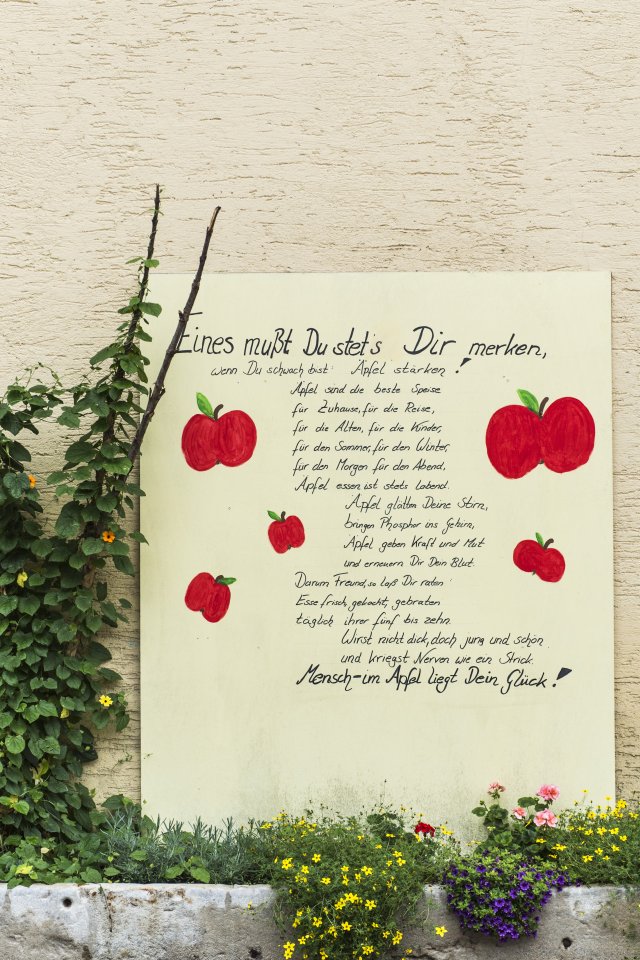 Eines mußt Du stet's Dir merken,
wenn Du schwach bist: Äpfel stärken!
Äpfel sind die beste Speise
für Zuhause, für die Reise,
für die Alten, für die Kinder,
für den Sommer, für den Winter,
für den Morgen für den Abend,
Äpfel essen ist stets labend.
Äpfel glätten Deine Stirn,
bringen Phosphor ins Gehirn,
Äpfel geben Kraft und Mut
und erneuern Dir Dein Blut.
Darum Freund, so laß Dir raten:
Esse frisch, gekocht, gebraten
täglich ihrer fünf bis zehn.
Wirst nicht dick, doch jung und schön
und kriegst Nerven wie ein Strick.
Mensch-im Apfel liegt Dein Glück!